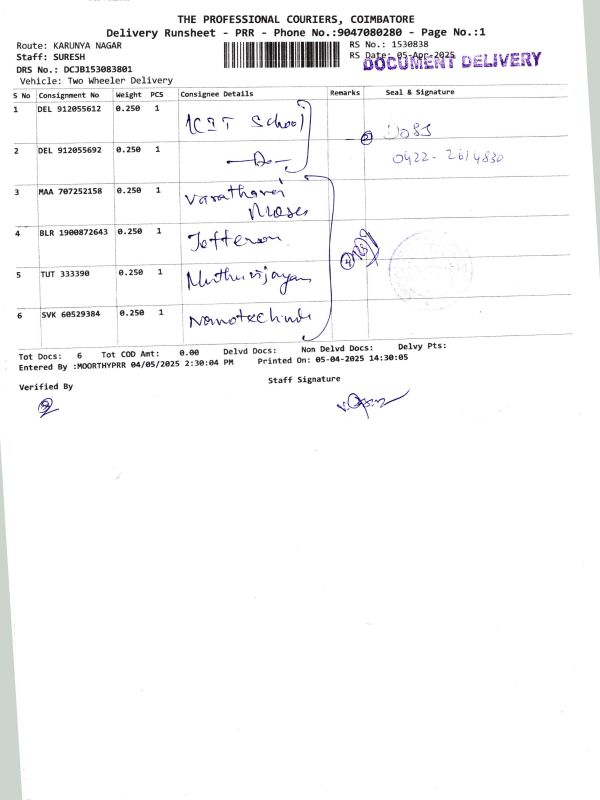 THE PROFESSIONAL COURIERS, COIMBATORE
Delivery Runsheet - PRR - Phone No.:9047080280 - Page No.:1
Route: KARUNYA NAGAR
RS No.: 1530838
Staff: SURESH
RS Date: 05-Apr-2025
DOCUMENT DELIVERY
DRS No.: DCJB153083801
Vehicle: Two Wheeler Delivery
S No Consignment No Weight PCS Consignee Details Remarks Seal & Signature
1 DEL 912055612 0.250 1 School
2 DEL 912055692 0.250 1 -Do-
0422-2614830
3 MAA 707252158 0.250 1
4 BLR 1900872643 0.250 1 Jefferson
5 TUT 333390 0.250 1
6 SVK 60529384 0.250 1
Tot Docs: 6 Tot COD Amt: 0.00 Delvd Docs: Non Delvd Docs: Delvy Pts:
Entered By :MOORTHYPRR 04/05/2025 2:30:04 PM Printed On: 05-04-2025 14:30:05
Verified By
Staff Signature